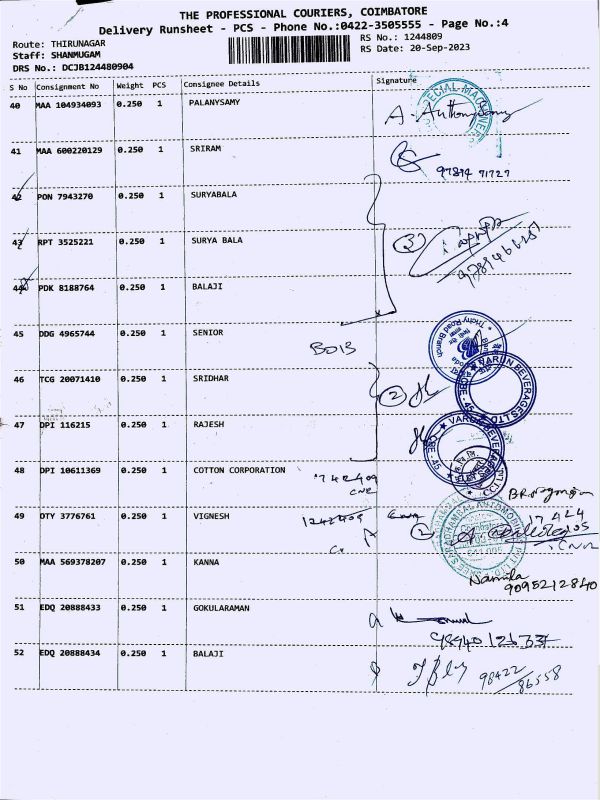 THE PROFESSIONAL COURIERS, COIMBATORE
Delivery Runsheet - PCS - Phone No.:0422-3505555 - Page No.:4
Route: THIRUNAGAR
RS No.: 1244809
Staff: SHANMUGAM
RS Date: 20-Sep-2023
DRS No.: DCJB124480904
S No Consignment No Weight PCS Consignee Details Signature
40 MAA 104934093 0.250 1 PALANYSAMY
41 MAA 600220129 0.250 1 SRIRAM
97874 71727
42 PON 7943270 0.250 1 SURYABALA
43 RPT 3525221 0.250 1 SURYA BALA
3
44 PDK 8188764 0.250 1 BALAJI
45 DDG 4965744 0.250 1 SENIOR
BOB
Trichy Road Branch
46 TCG 20071410 0.250 1 SRIDHAR
2
VARUN BEVERAGES LTD
CBE - 45
47 DPI 116215 0.250 1 RAJESH
VARUN BEVERAGES
CBE - 45
48 DPI 10611369 0.250 1 COTTON CORPORATION
49 DTY 3776761 0.250 1 VIGNESH
2
50 MAA 569378207 0.250 1 KANNA
Namila
9095212840
51 EDQ 20888433 0.250 1 GOKULARAMAN
52 EDQ 20888434 0.250 1 BALAJI
98422
86558